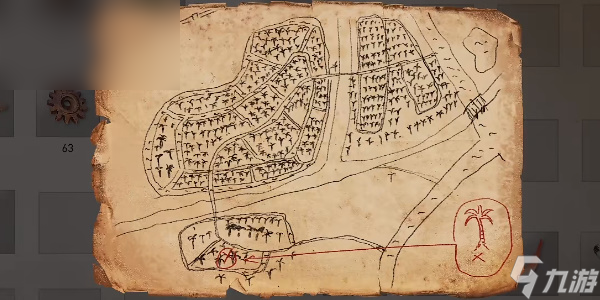 63
九游